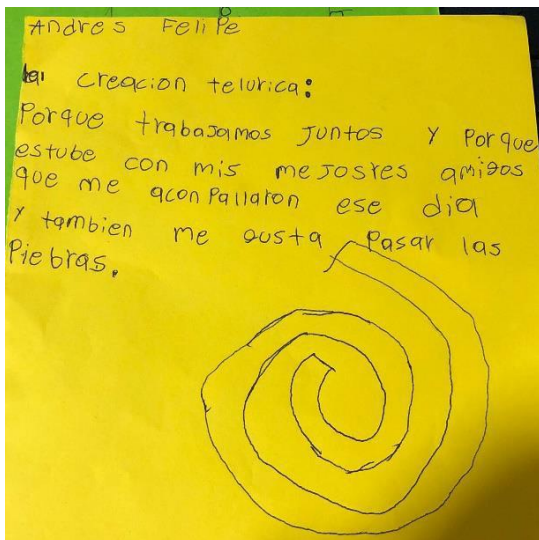 Andres Felipe
la creacion telurica:
Porque trabajamos juntos y Porque
estube con mis mejosres amigos
que me aconpallaron ese dia
y tambien me gusta Pasar las
Piebras.